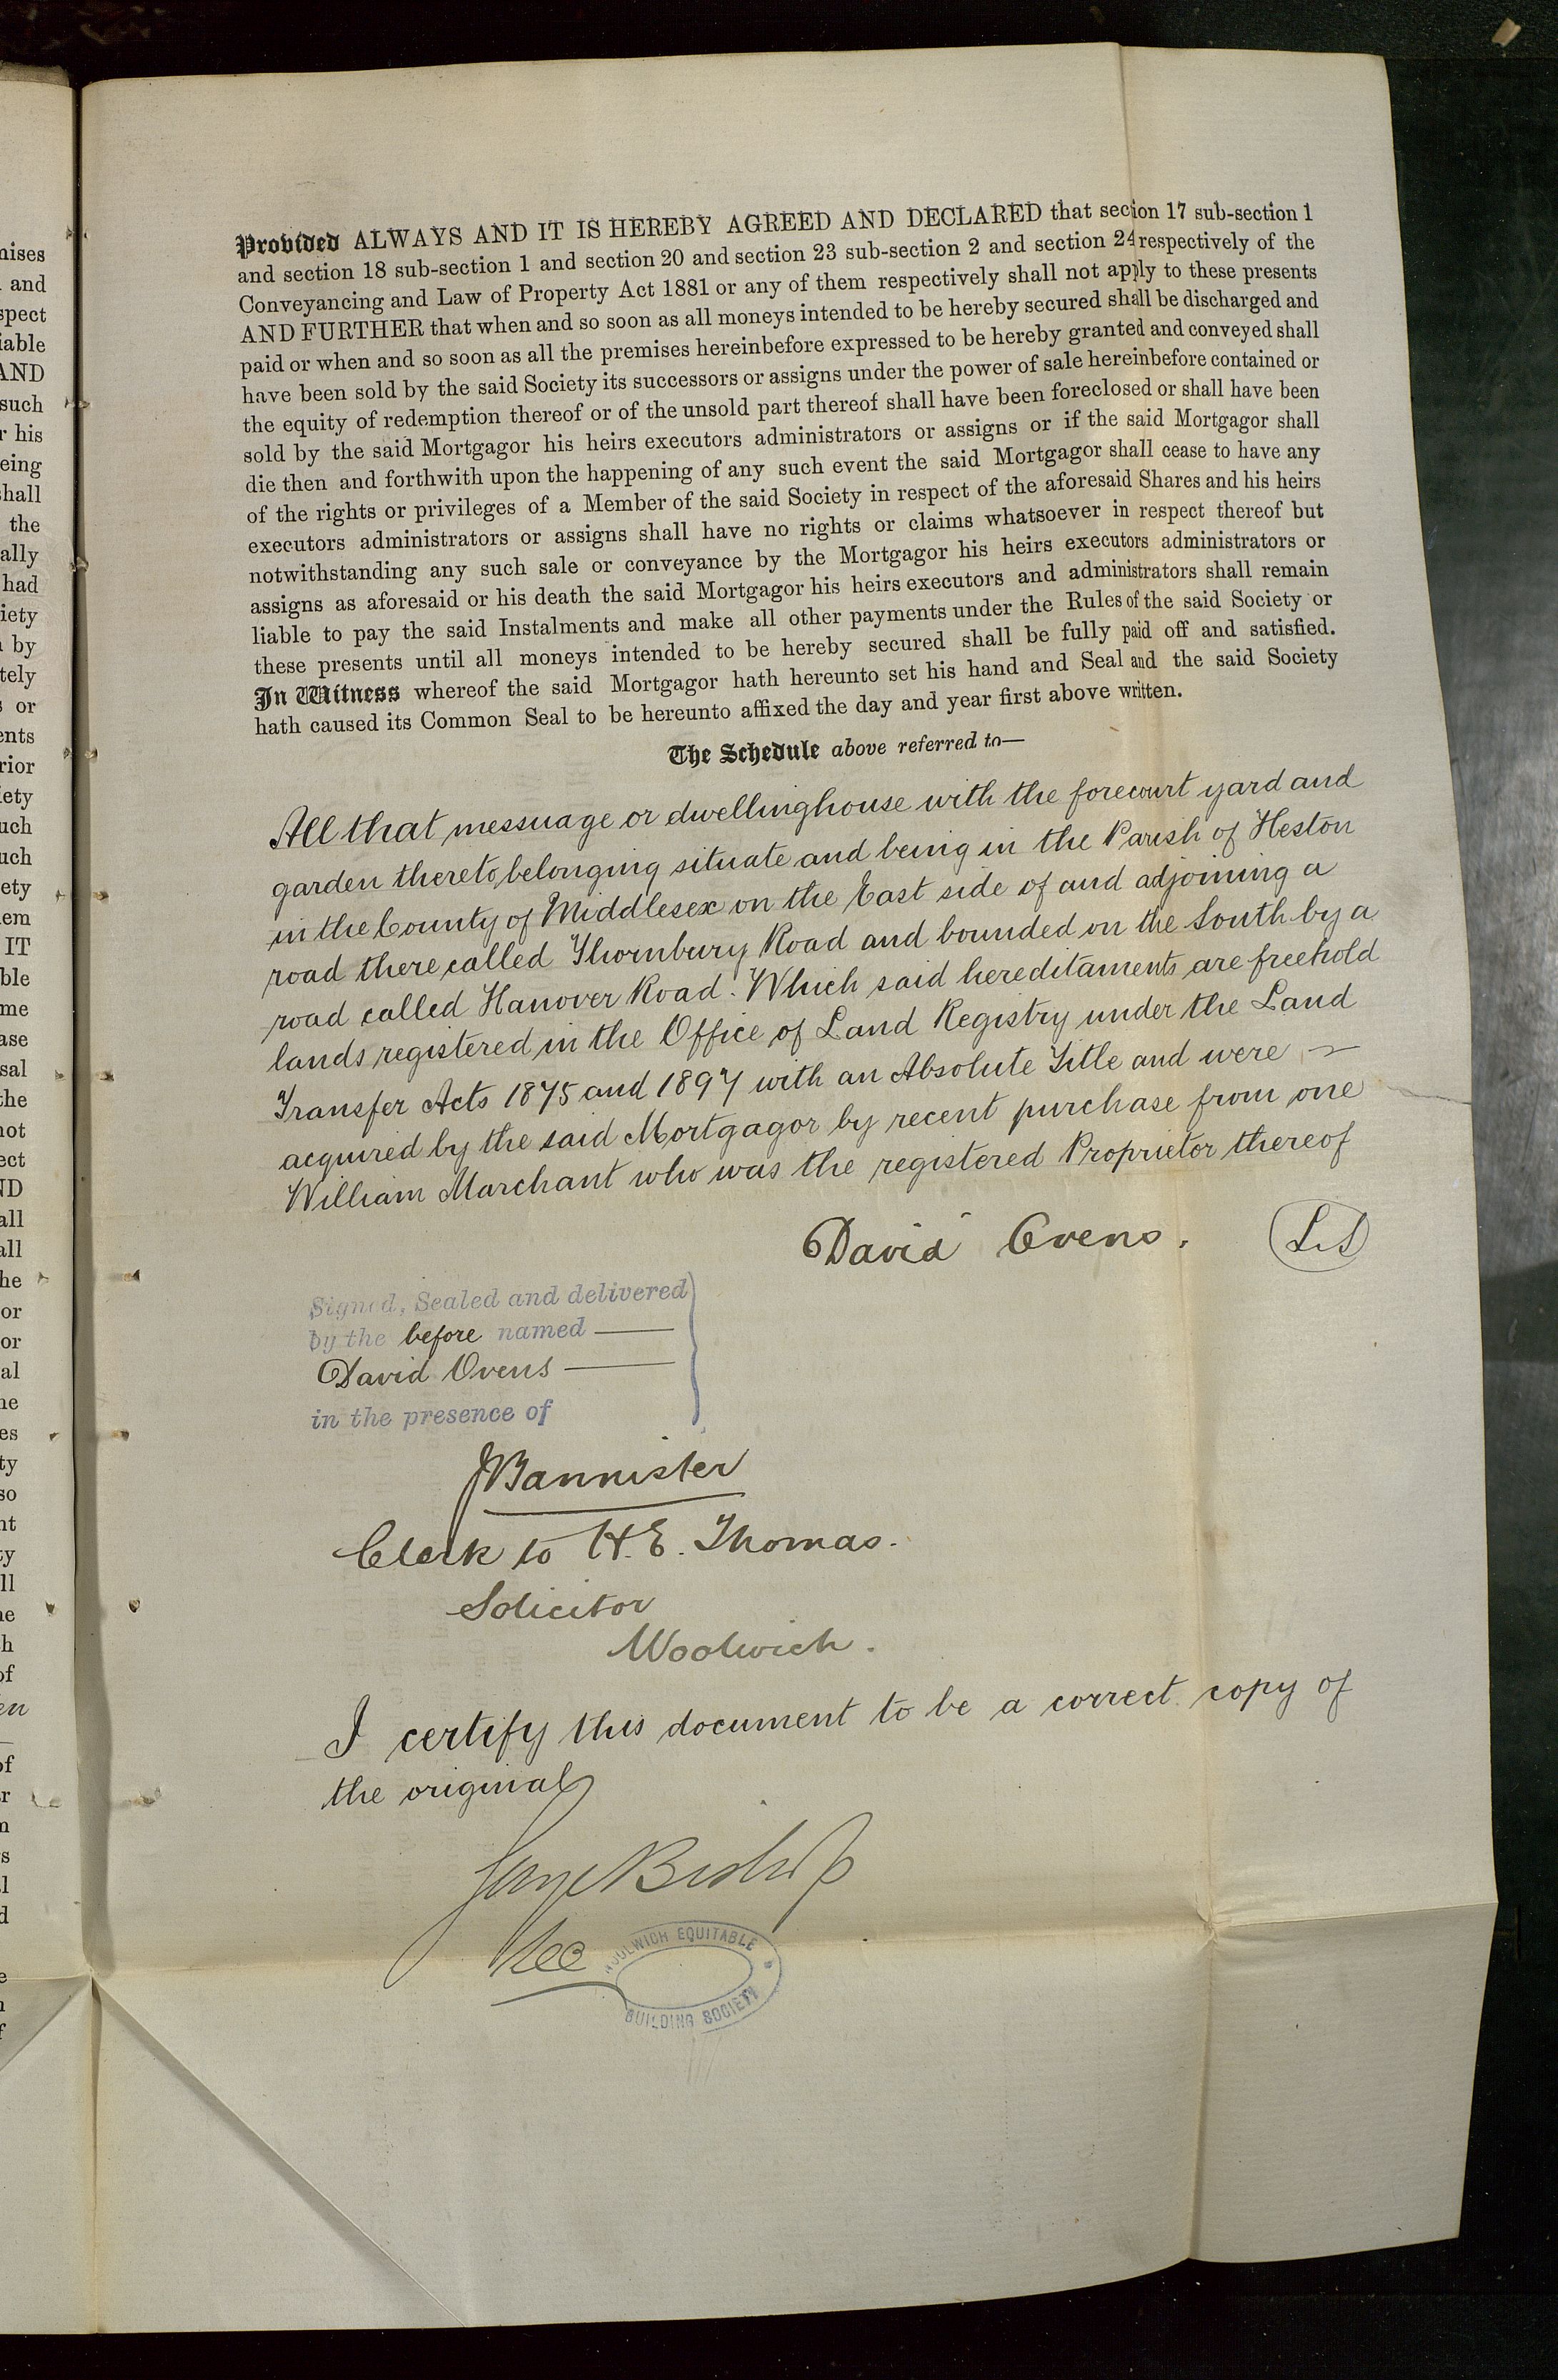 Provided ALWAYS AND IT IS HEREBY AGREED AND DECLARED that section 17 sub-section 1
and section 18 sub-section 1 and section 20 and section 23 sub-section 2 and section 24 respectively of the
Conveyancing and Law of Property Act 1881 or any of them respectively shall not apply to these presents
AND FURTHER that when and so soon as all moneys intended to be hereby secured shall be discharged and
paid or when and so soon as all the premises hereinbefore expressed to be hereby granted and conveyed shall
have been sold by the said Society its successors or assigns under the power of sale hereinbefore contained or
the equity of redemption thereof or of the unsold part thereof shall have been foreclosed or shall have been
sold by the said Mortgagor his heirs executors administrators or assigns or if the said Mortgagor shall
die then and forthwith upon the happening of any such event the said Mortgagor shall cease to have any
of the rights or privileges of a Member of the said Society in respect of the aforesaid Shares and his heirs
executors administrators or assigns shall have no rights or claims whatsoever in respect thereof but
notwithstanding any such sale or conveyance by the Mortgagor his heirs executors administrators or
assigns as aforesaid or his death the said Mortgagor his heirs executors and administrators shall remain
liable to pay the said Instalments and make all other payments under the Rules of the said Society or
these presents until all moneys intended to be hereby secured shall be fully paid off and satisfied.
In Witness whereof the said Mortgagor hath hereunto set his hand and Seal and the said Society
hath caused its Common Seal to be hereunto affixed the day and year first above written.
The Schedule above referred to—
All that messuage or dwellinghouse with the forecourt yard and
garden thereto belonging situate and being in the Parish of Heston
in the County of Middlesex on the East side of and adjoining a
road there called Thornbury Road and bounded on the South by a
road called Hanover Road. Which said hereditaments are freehold
lands registered in the Office of Land Registry under the Land
Transfer Acts 1875 and 1897 with an Absolute Title and were
acquired by the said Mortgagor by recent purchase from one
William Marchant who was the registered Proprietor thereof
David Ovens. L.S
Signed, Sealed and delivered
by the before named
David Ovens
in the presence of
J Bannister
Clerk to H. E. Thomas.
Solicitor
Woolwich.
I certify this document to be a correct copy of
the original
Bishop
Sec
WOOLWICH EQUITABLE
BUILDING SOCIETY